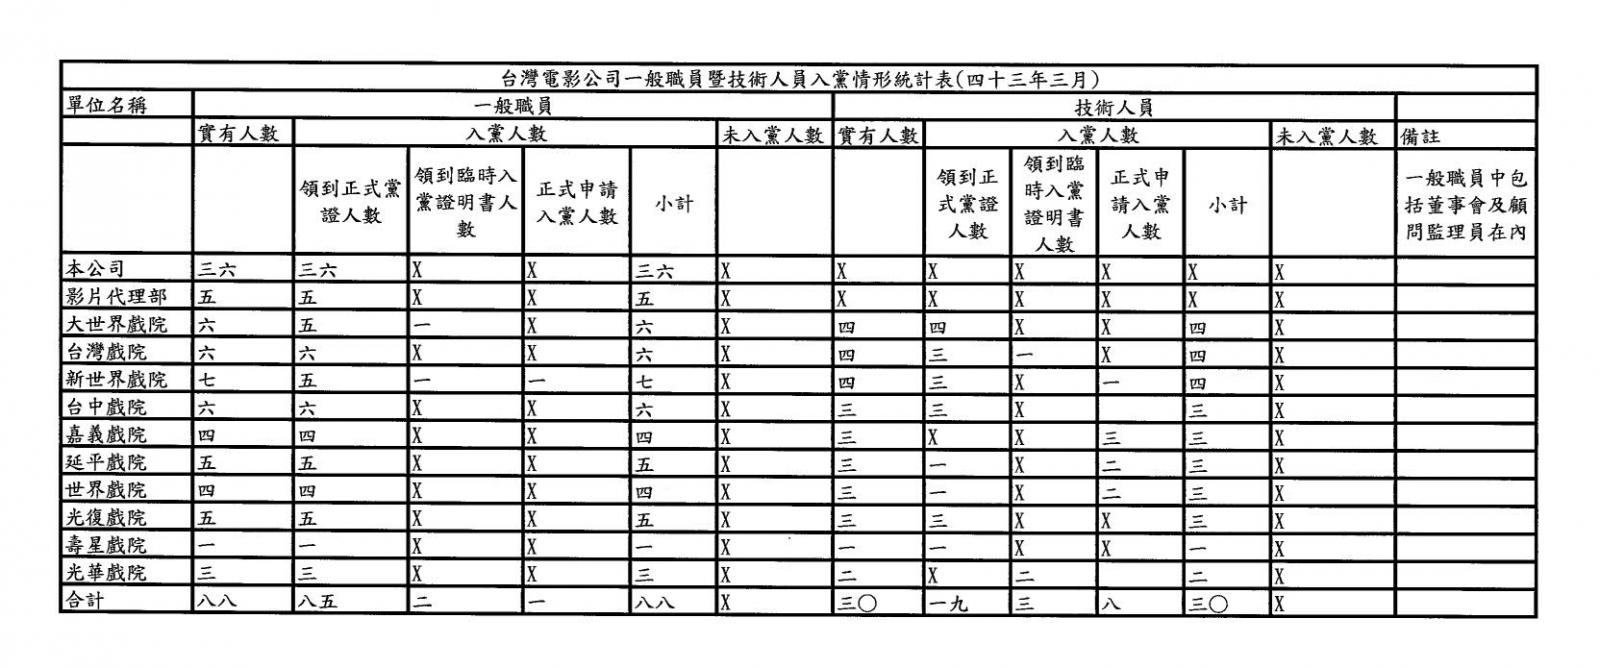 台灣電影公司一般職員暨技術人員入黨情形統計表(四十三年三月)
單位名稱 一般職員 技術人員
實有人數 入黨人數 未入黨人數 實有人數 入黨人數 未入黨人數 備註
領到正式黨證人數 領到臨時入黨證明書人數 正式申請入黨人數 小計 領到正式黨證人數 領到臨時入黨證明書人數 正式申請入黨人數 小計 一般職員中包括董事會及顧問監理員在內
本公司 三六 三六 X X 三六 X X X X X X X
影片代理部 五 五 X X 五 X X X X X X X
大世界戲院 六 五 一 X 六 X 四 四 X X 四 X
台灣戲院 六 六 X X 六 X 四 三 一 X 四 X
新世界戲院 七 五 一 一 七 X 四 三 X 一 四 X
台中戲院 六 六 X X 六 X 三 三 X 三 X
嘉義戲院 四 四 X X 四 X 三 X X 三 三 X
延平戲院 五 五 X X 五 X 三 一 X 二 三 X
世界戲院 四 四 X X 四 X 三 一 X 二 三 X
光復戲院 五 五 X X 五 X 三 三 X X 三 X
壽星戲院 一 一 X X 一 X 一 一 X X 一 X
光華戲院 三 三 X X 三 X 二 X 二 二 X
合計 八八 八五 二 一 八八 X 三〇 一九 三 八 三〇 X